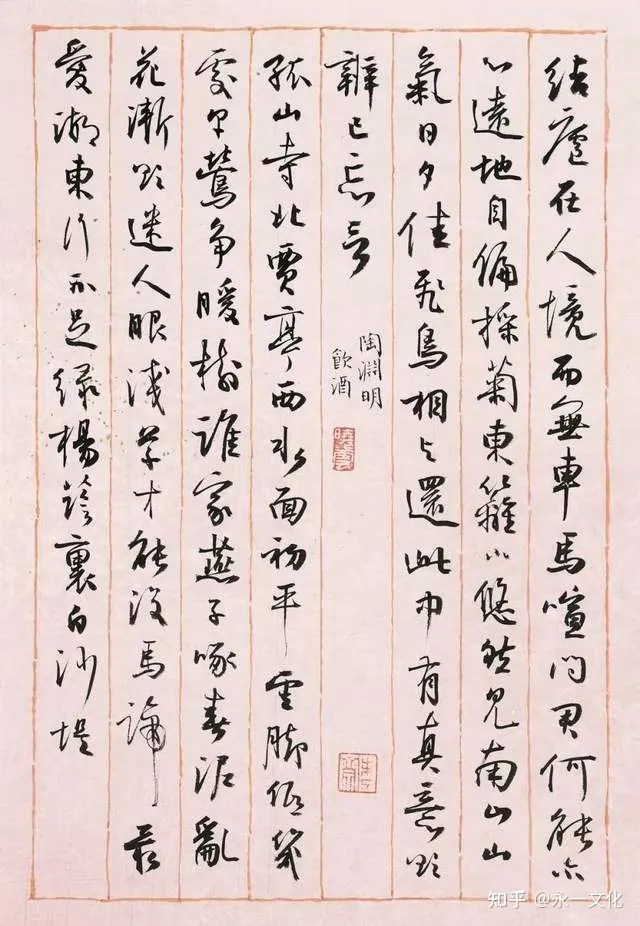 結廬在人境而無車馬喧问君何能尒
心遠地自偏採菊東籬下悠然見南山山
氣日夕佳飛鳥相与還此中有真意欲
辨已忘言
陶淵明
飲酒
孤山寺北賈亭西水面初平雲脚低幾
處早鶯争暖樹誰家燕子啄春泥亂
花漸欲迷人眼淺草才能没馬蹄最
愛湖東行不足绿楊陰裏白沙堤
知乎 @永一文化